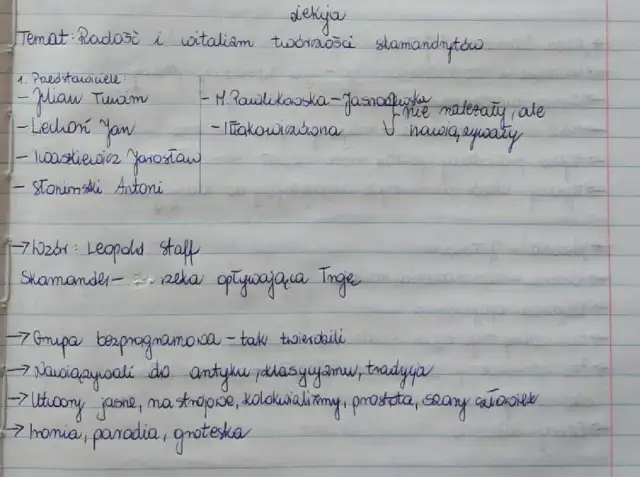 Lekcja
Temat: Radość i witalizm twórczości skamandrytów
1. Przedstawiciele:
- Julian Tuwim - M. Pawlikowska-Jasnorzewska
- Lechoń Jan - Iłłakowiczówna nie należały, ale nawiązywały
- Iwaszkiewicz Jarosław
- Słonimski Antoni
→ Wzór: Leopold Staff
Skamander - rzeka opływająca Troję
→ Grupa bezprogramowa - tak twierdzili
→ Nawiązywali do antyku, klasycyzmu, tradycja
→ Utwory jasne, nastrojowe, kolokwializmy, prostota, szary człowiek
→ Ironia, parodia, groteska